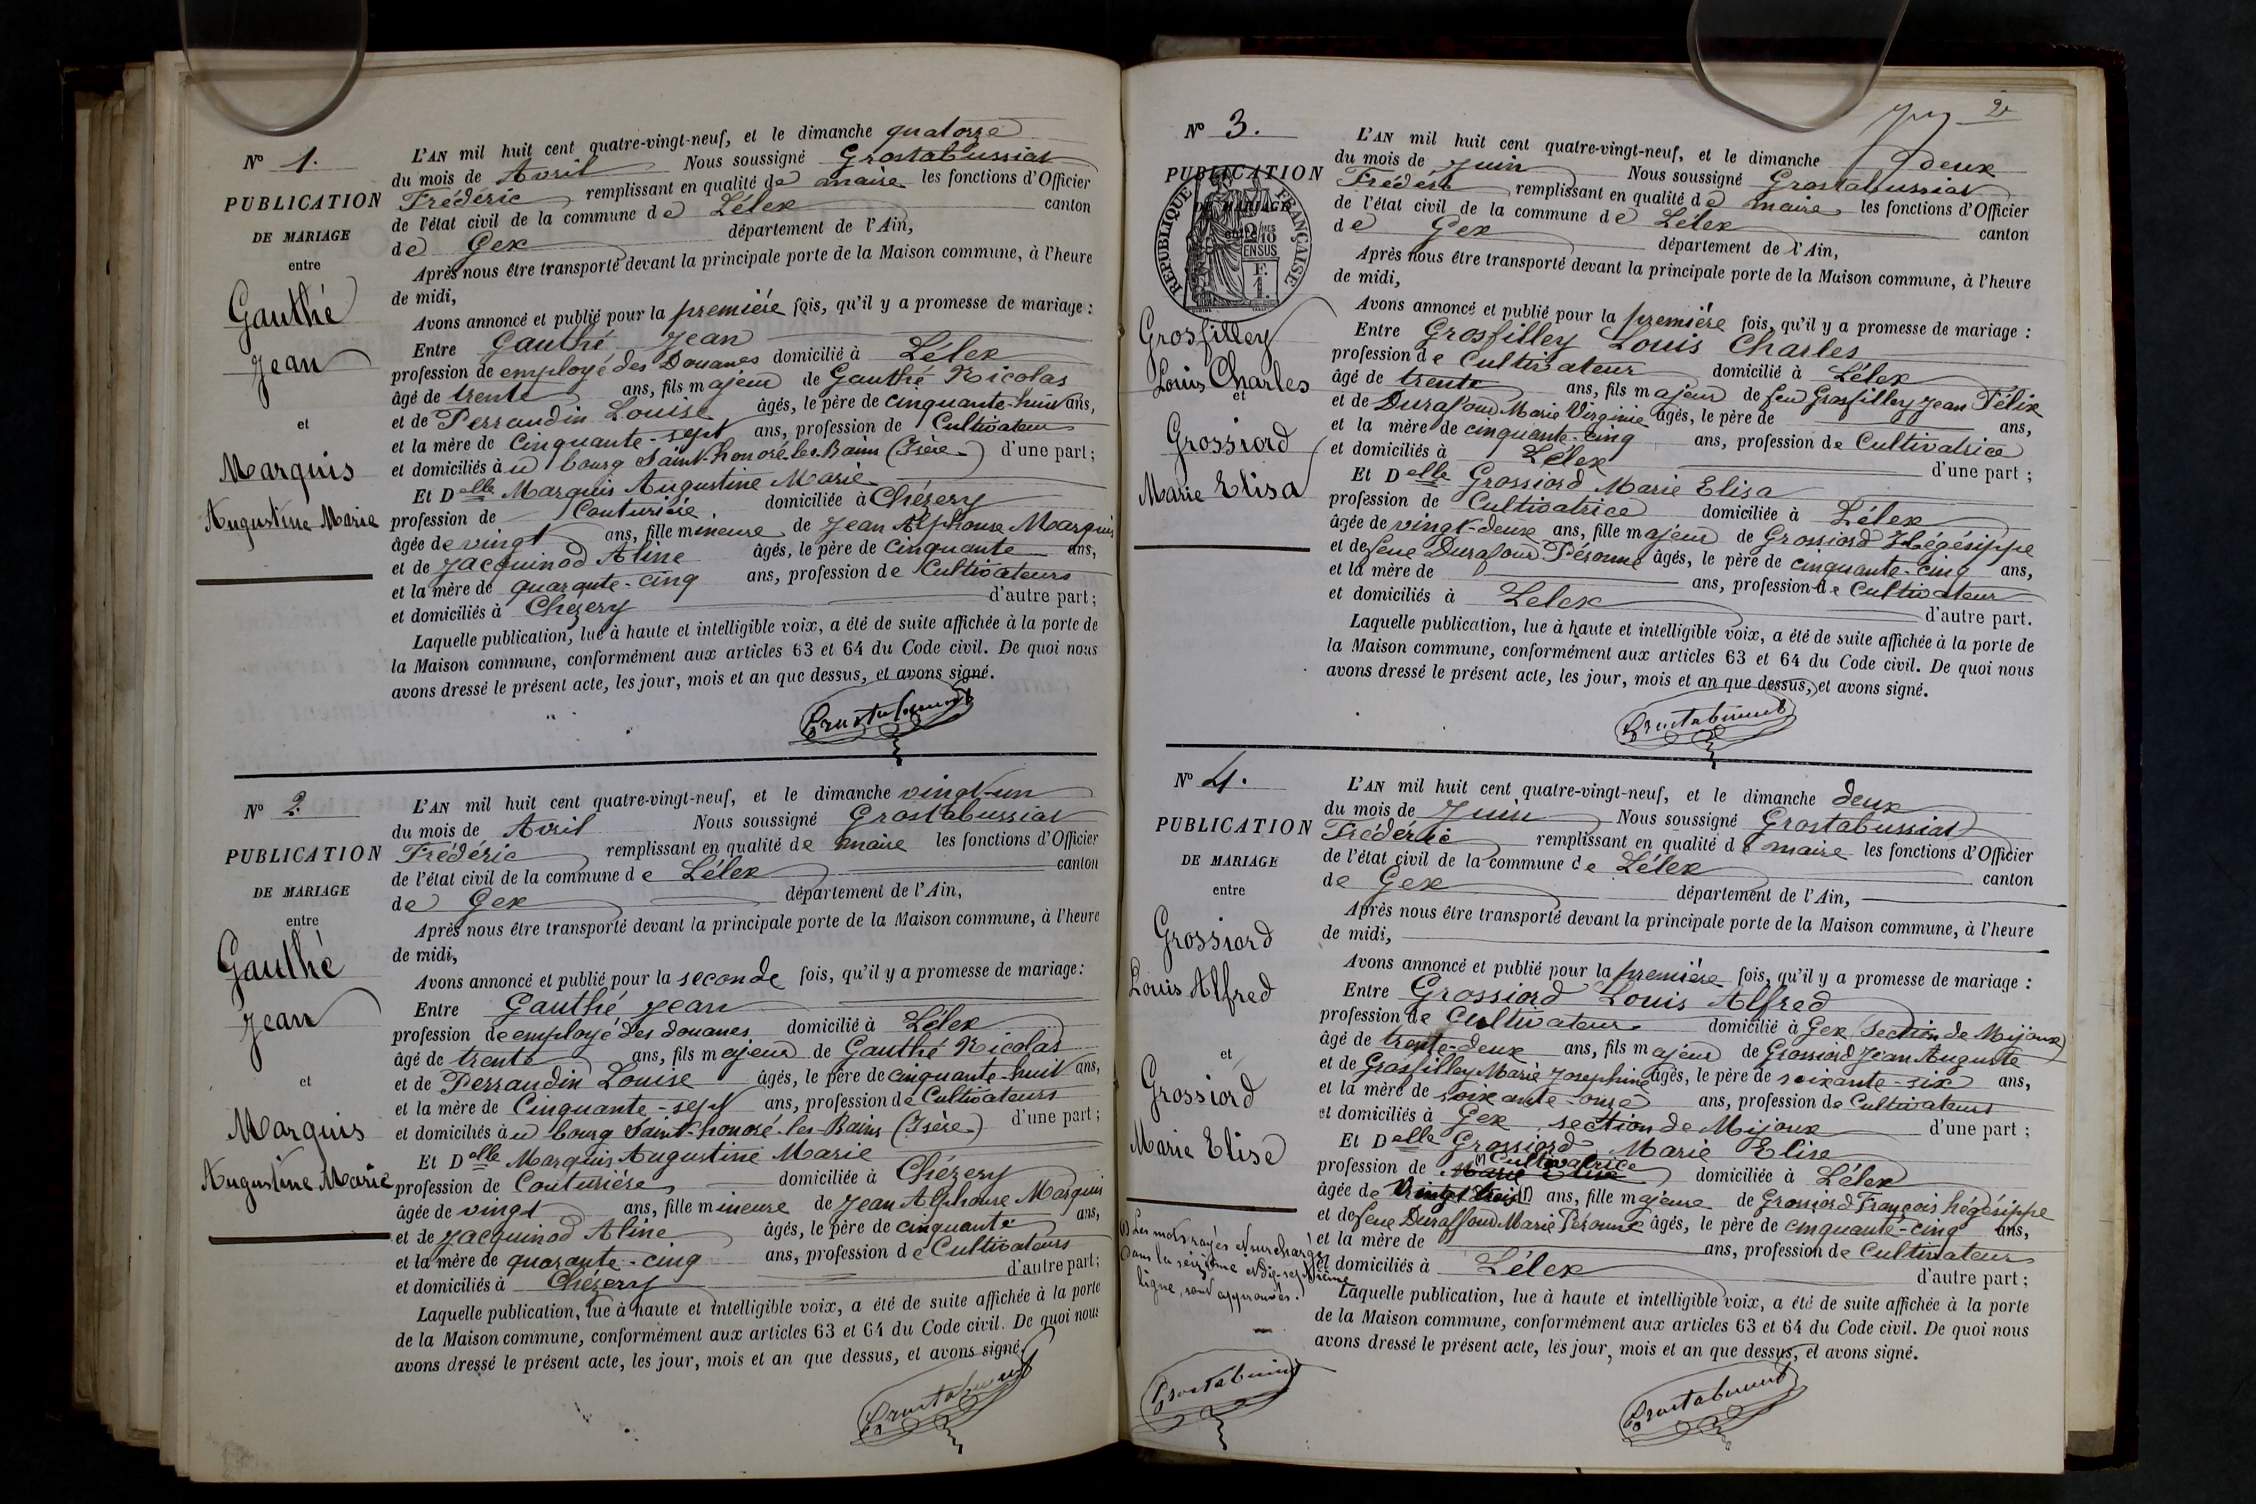 N° 1.
PUBLICATION
DE MARIAGE
entre
Gauthé
Jean
et
Marquis
Augustine Marie
L'AN mil huit cent quatre-vingt-neuf, et le dimanche quatorze
du mois de Avril Nous soussigné Grostabussiat
Frédéric remplissant en qualité de maire les fonctions d'Officier
de l'état civil de la commune de Lélex canton
de Gex département de l'Ain,
Après nous être transporté devant la principale porte de la Maison commune, à l'heure
de midi,
Avons annoncé et publié pour la première fois, qu'il y a promesse de mariage :
Entre Gauthé Jean
profession de employé des Douanes domicilié à Lélex
âgé de trente ans, fils majeur de Gauthé Nicolas
et de Perraudin Louise âgés, le père de cinquante-huit ans,
et la mère de Cinquante-sept ans, profession de Cultivateurs
et domiciliés à u bourg Saint-honoré-les-Bains (Isère) d'une part ;
Et Delle Marquis Augustine Marie
profession de Couturière domiciliée à Chézery
âgée de vingt ans, fille mineure de Jean Alphonse Marquis
et de Jacquinod Aline âgés, le père de Cinquante ans,
et la mère de quarante-cinq ans, profession de Cultivateurs
et domiciliés à Chezery d'autre part ;
Laquelle publication, lue à haute et intelligible voix, a été de suite affichée à la porte de
la Maison commune, conformément aux articles 63 et 64 du Code civil. De quoi nous
avons dressé le présent acte, les jour, mois et an que dessus, et avons signé.
Grostabussiat
N° 2.
PUBLICATION
DE MARIAGE
entre
Gauthé
Jean
et
Marquis
Augustine Marie
L'AN mil huit cent quatre-vingt-neuf, et le dimanche vingt-un
du mois de Avril Nous soussigné Grostabussiat
Frédéric remplissant en qualité de maire les fonctions d'Officier
de l'état civil de la commune de Lélex canton
de Gex département de l'Ain,
Après nous être transporté devant la principale porte de la Maison commune, à l'heure
de midi,
Avons annoncé et publié pour la seconde fois, qu'il y a promesse de mariage :
Entre Gauthé Jean
profession de employé des douanes domicilié à Lélex
âgé de trente ans, fils majeur de Gauthé Nicolas
et de Perraudin Louise âgés, le père de cinquante-huit ans,
et la mère de Cinquante-sept ans, profession de Cultivateurs
et domiciliés à u bourg Saint-honoré-les-Bains (Isère) d'une part ;
Et Delle Marquis Augustine Marie
profession de Couturière domiciliée à Chézery
âgée de vingt ans, fille mineure de Jean Alphonse Marquis
et de Jacquinod Aline âgés, le père de cinquante ans,
et la mère de quarante-cinq ans, profession de Cultivateurs
et domiciliés à Chézery d'autre part ;
Laquelle publication, lue à haute et intelligible voix, a été de suite affichée à la porte
de la Maison commune, conformément aux articles 63 et 64 du Code civil. De quoi nous
avons dressé le présent acte, les jour, mois et an que dessus, et avons signé.
Grostabussiat
2
N° 3.
PUBLICATION
DE MARIAGE
RÉPUBLIQUE FRANÇAISE
2/10 EN SUS
F.
1.
Grosfilley
Louis Charles
et
Grossiord
Marie Elisa
L'AN mil huit cent quatre-vingt-neuf, et le dimanche deux
du mois de Juin Nous soussigné Grostabussiat
Frédéric remplissant en qualité de maire les fonctions d'Officier
de l'état civil de la commune de Lélex canton
de Gex département de l'Ain,
Après nous être transporté devant la principale porte de la Maison commune, à l'heure
de midi,
Avons annoncé et publié pour la première fois, qu'il y a promesse de mariage :
Entre Grosfilley Louis Charles
profession de Cultivateur domicilié à Lélex
âgé de trente ans, fils majeur de feu Grosfilley Jean Félix
et de Durafour Marie Virginie âgés, le père de ans,
et la mère de cinquante-cinq ans, profession de Cultivatrice
et domiciliés à Lélex d'une part ;
Et Delle Grossiord Marie Elisa
profession de Cultivatrice domiciliée à Lélex
âgée de vingt-deux ans, fille majeur de Grossiord Hégésippe
et de feue Durafour Péronne âgés, le père de cinquante-cinq ans,
et la mère de ans, profession de Cultivateur
et domiciliés à Lelex d'autre part.
Laquelle publication, lue à haute et intelligible voix, a été de suite affichée à la porte de
la Maison commune, conformément aux articles 63 et 64 du Code civil. De quoi nous
avons dressé le présent acte, les jour, mois et an que dessus, et avons signé.
Grostabussiat
N° 4.
PUBLICATION
DE MARIAGE
entre
Grossiord
Louis Alfred
et
Grossiord
Marie Elise
(1) Les mots rayés et surchargés
dans la seizième et dix-septième
ligne, sont approuvés.
Grostabussiat
L'AN mil huit cent quatre-vingt-neuf, et le dimanche deux
du mois de Juin Nous soussigné Grostabussiat
Frédéric remplissant en qualité de maire les fonctions d'Officier
de l'état civil de la commune de Lélex canton
de Gex département de l'Ain,
Après nous être transporté devant la principale porte de la Maison commune, à l'heure
de midi,
Avons annoncé et publié pour la première fois, qu'il y a promesse de mariage :
Entre Grossiord Louis Alfred
profession de Cultivateur domicilié à Gex (section de Mijoux)
âgé de trente-deux ans, fils majeur de Grossiord Jean Auguste
et de Grosfilley Marie Josephine âgés, le père de soixante-six ans,
et la mère de soixante-onze ans, profession de Cultivateurs
et domiciliés à Gex section de Mijoux d'une part ;
Et Delle Grossiord Marie Elise
profession de (1) Cultivatrice Marie Elise domiciliée à Lélex
âgée de vingt trois (1) ans, fille majeure de Grossiord François hégésippe
et de feue Duraffour Marie Péronne âgés, le père de cinquante-cinq ans,
et la mère de ans, profession de Cultivateur
et domiciliés à Lélex d'autre part ;
Laquelle publication, lue à haute et intelligible voix, a été de suite affichée à la porte
de la Maison commune, conformément aux articles 63 et 64 du Code civil. De quoi nous
avons dressé le présent acte, les jour, mois et an que dessus, et avons signé.
Grostabussiat